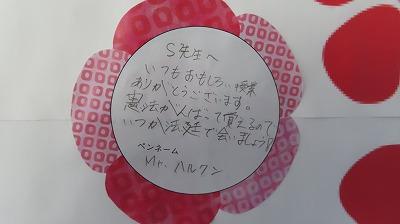 S先生へ
いつもおもしろい授業
ありがとうございます。
憲法がんばって覚えるので
いつか法廷で会いましょう!
ペンネーム
Mr. ハルクン